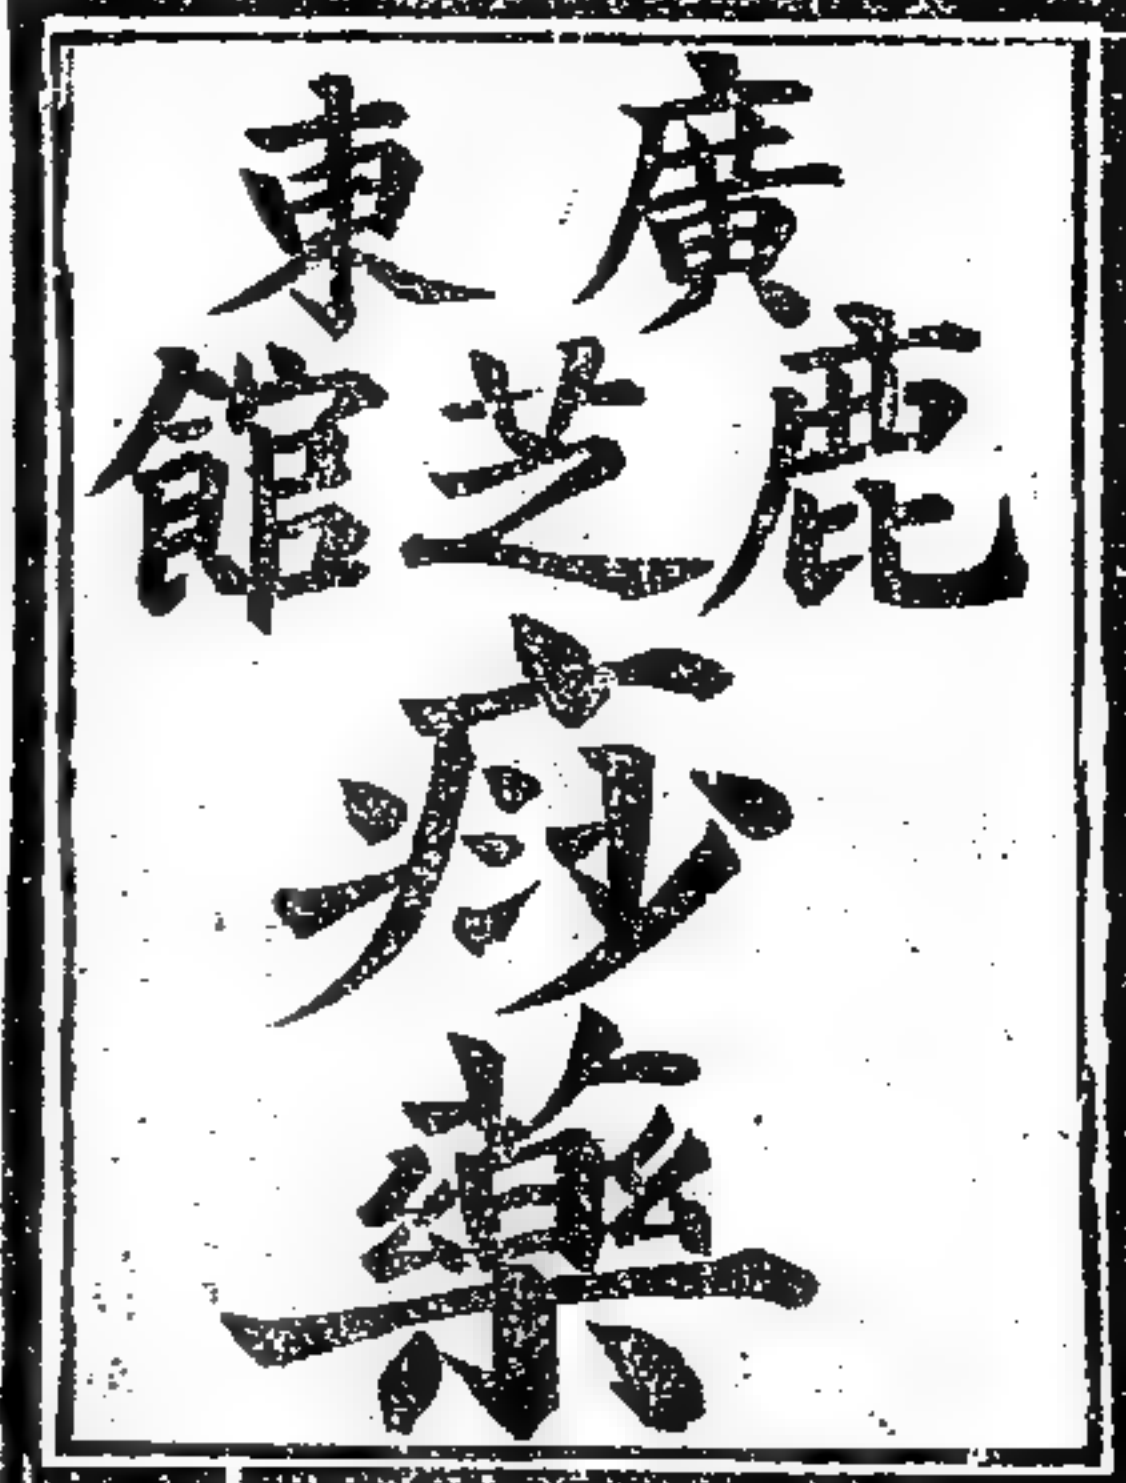 廣東
鹿芝館
痧藥